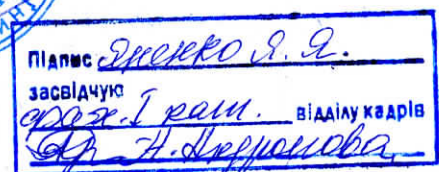 Підпис Яненко Я. Я.
засвідчую
фах. І кат. відділу кадрів
Н. Андронова